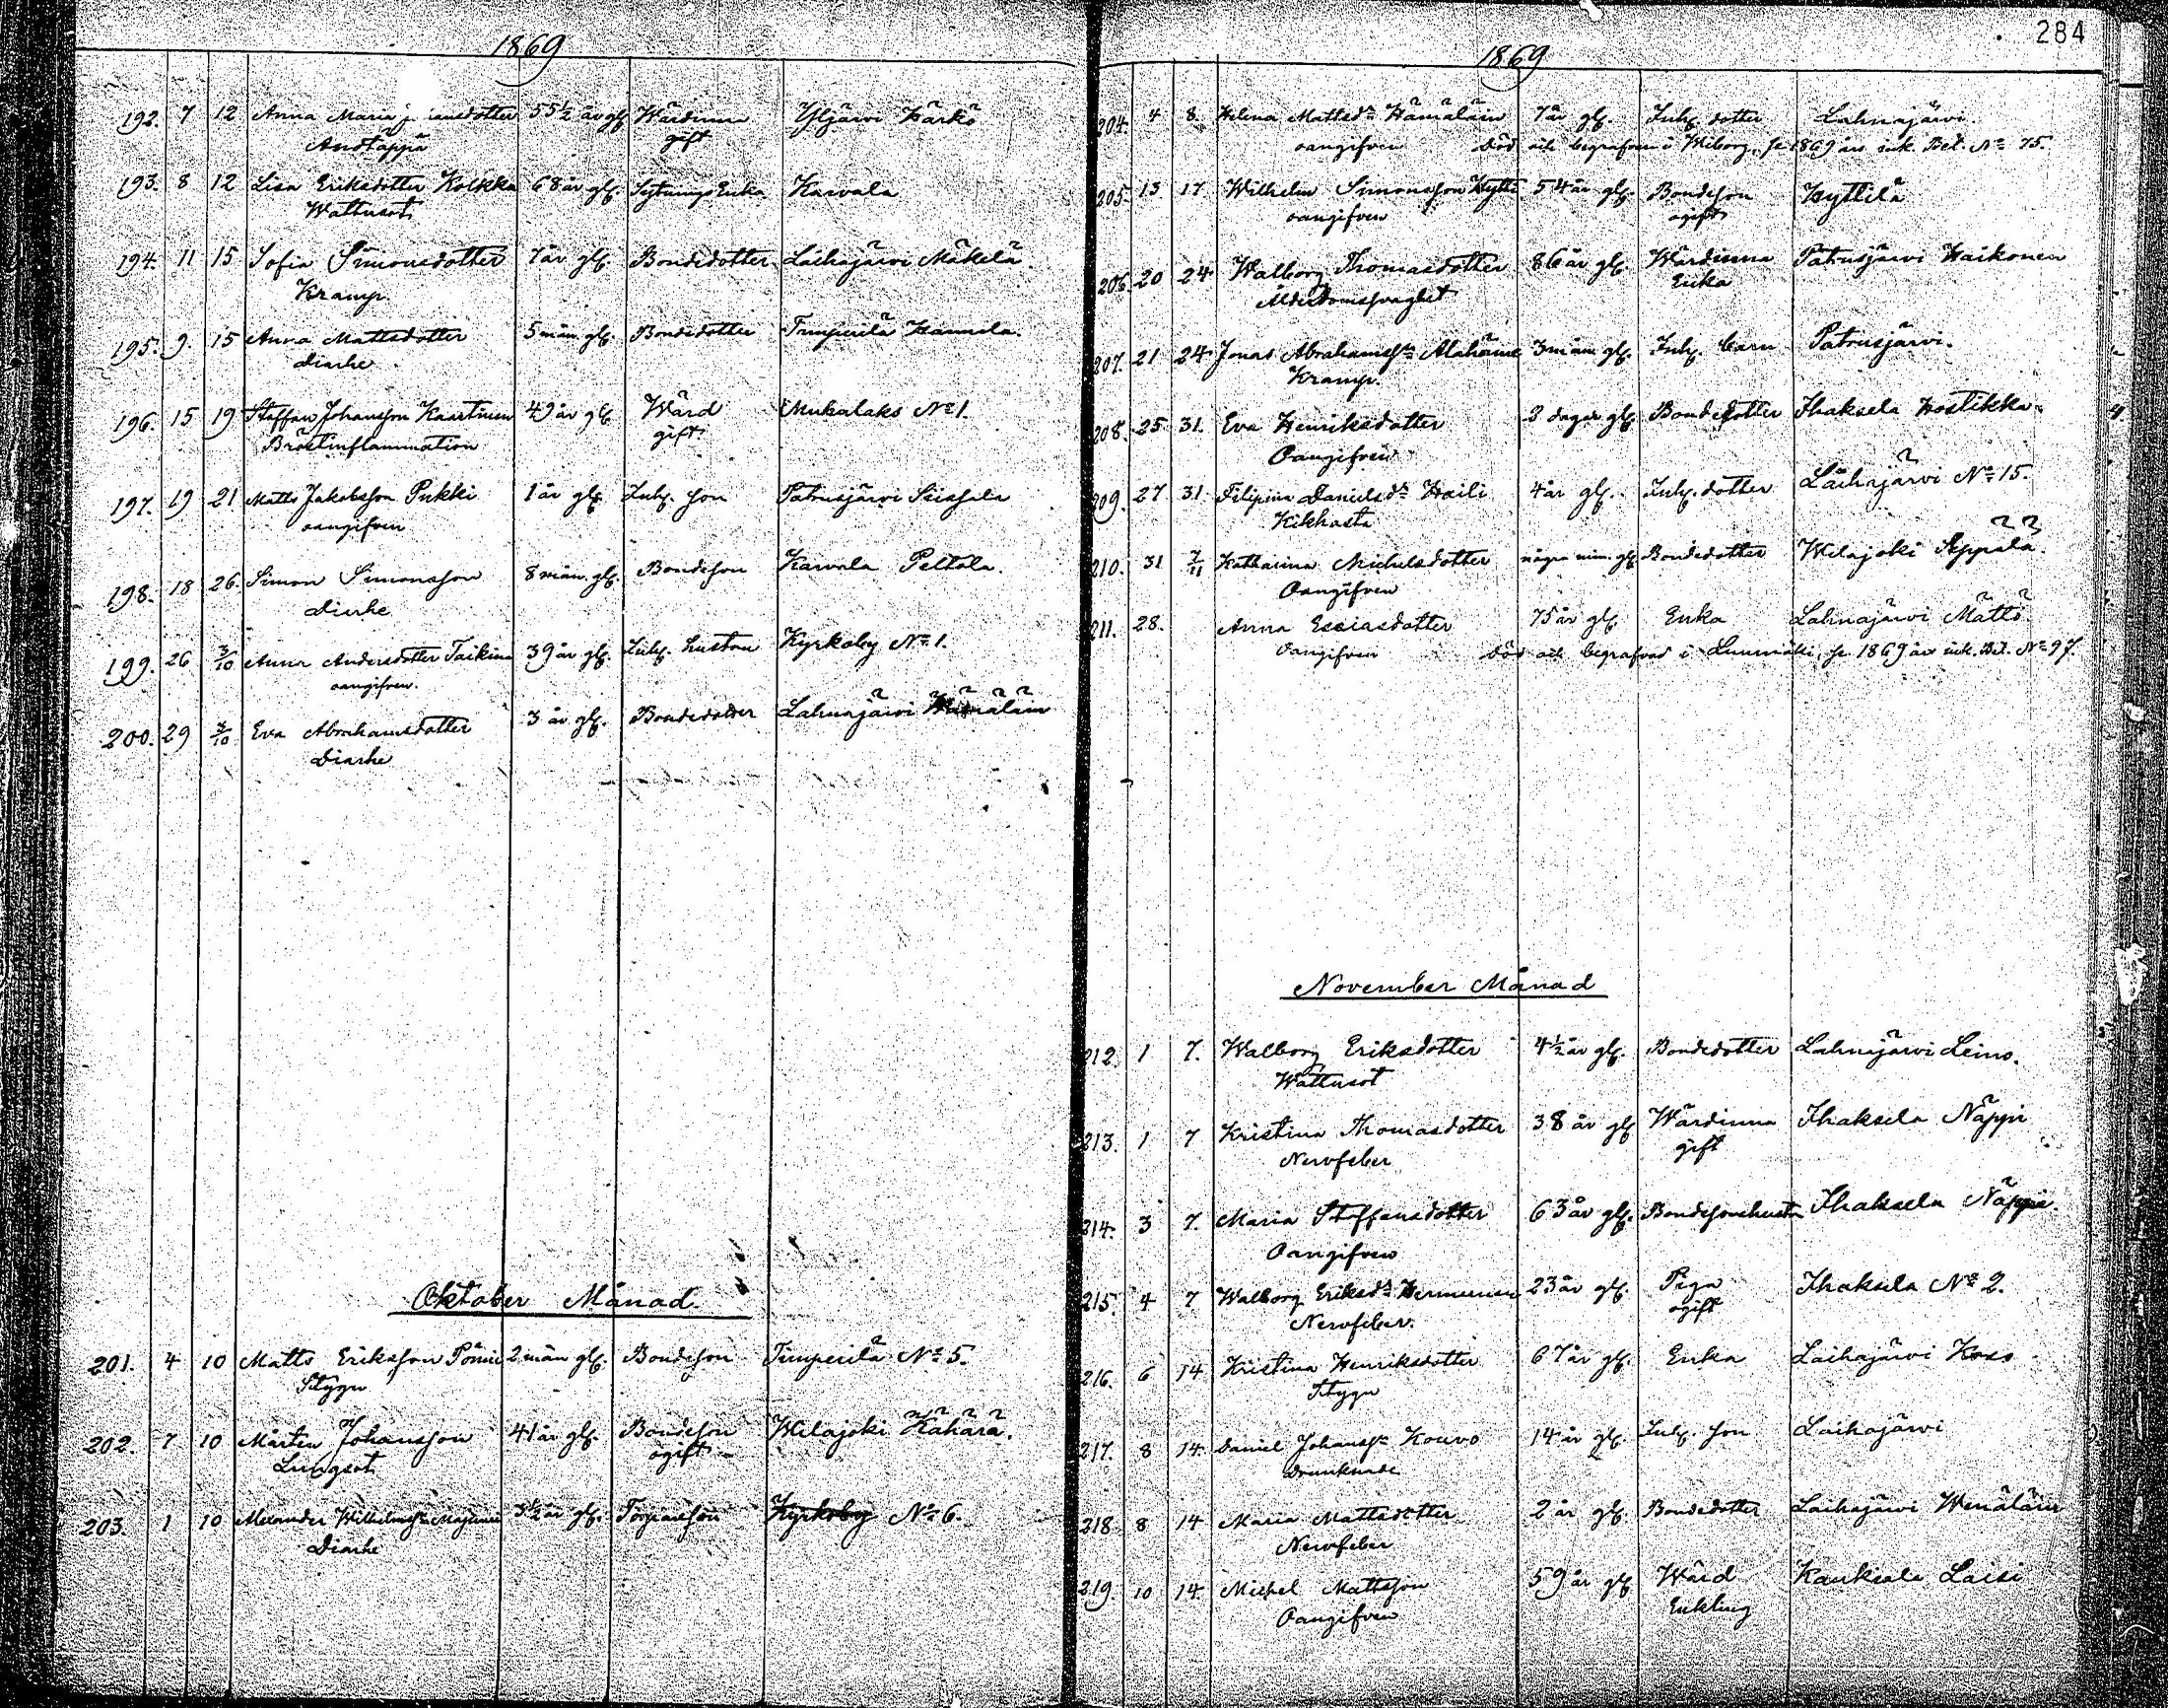 1869
192. 7 12 Anna Maria J. iansdotter 55½ år gl. Wärdinna Yljärvi Kärkö
Andtäppa gift
193. 8 12 Lisa Eriksdotter Kolkka 68 år gl. Sytnings Enka Karvala
Wattusot
194. 11 15 Sofia Simonsdotter 7 år gl. Bondedotter Laihajärvi Mäkelä
Kramp.
195. 9. 15 Anna Mattsdotter 5 mån. gl. Bondedotter Timperilä Hannila.
diarhe
196. 15 19 Staffan Johansson Kaartinen 49 år gl. Wärd Mukalaks No 1.
Bröstinflammation gift
197. 19 21 Matts Jakobsson Pukki 1 år gl. Inh. son Patrusjärvi
oangifven
198. 18 26. Simon Simonsson 8 mån. gl. Bondeson Karvala Peltola.
diarhe
199. 26 3/10 Anna Andersdotter Taikina 39 år gl. Inh. hustru Kyrkoby No 1.
oangifven.
200. 29 3/10 Eva Abrahamsdotter 3 år gl. Bondedotter Lahnajärvi
Diarhe
Oktober Månad.
201. 4 10 Matts Eriksson 2 mån gl. Bondeson Timperilä No 5.
Stygn
202. 7 10 Mårten Johansson 41 år gl. Bondeson Wilajoki Kähärä.
Lungsot ogift
203. 1 10 Alexander Wilhelmss. 3½ år gl. Torparson Kyrkoby No 6.
Diarhe
284
1869
204. 4 8. Helena Mattsdr Hämäläin 7 år gl. Inh. dotter Lahnajärvi.
oangifven Död och begrafven i Wiborg, se 1869 års ink. Bet. No 75.
205. 13 17 Wilhelm Simonsson Kytti 54 år gl. Bondeson Kyttilä
oangifven ogift
206. 20 24 Walborg Thomasdotter 86 år gl. Wärdinna Patrusjärvi Haikonen
Ålderdomssvaghet Enka
207. 21 24 Jonas Abrahamss. 3 mån gl. Inh. barn Patrusjärvi.
Kramp.
208. 25 31. Eva Henriksdotter 2 dagar gl. Bondedotter Ihaksela Hostikka
Oangifven
209. 27 31. Filipina Danielsdr Haili 4 år gl. Inh. dotter Laihajärvi No 15.
Kikhosta
210. 31 7/11 Katharina Michelsdotter några min. gl. Bondedotter Wilajoki Seppälä.
Oangifven
211. 28. Anna Esaiasdotter 75 år gl. Enka Lahnajärvi Mättö.
Oangifven Död och begrafvad i Luumäki, se 1869 års ink. Bet. No 97.
November Månad
212. 1 7. Walborg Eriksdotter 4½ år gl. Bondedotter Lahnajärvi Leino.
Wattusot
213. 1 7 Kristina Thomasdotter 38 år gl. Wärdinna Ihaksela Näppi
Nervfeber gift
214. 3 7. Maria Staffansdotter 63 år gl. Bondesonhustru Ihaksela Näppi.
Oangifven
215. 4 7 Walborg Eriksdr 23 år gl. Piga Ihaksela No 2.
Nervfeber. ogift
216. 6 14 Kristina Henriksdotter 67 år gl. Enka Laihajärvi
Stygn
217. 8 14. Daniel Johanss. Kouvo 14 år gl. Inh. son Laihajärvi
Drunknade
218 8 14 Maria Mattsdotter 2 år gl. Bondedotter Laihajärvi Wenäläin
Nervfeber
219. 10 14. Michel Mattsson 59 år gl. Wärd Kauksala Laisi
Oangifven Enkling